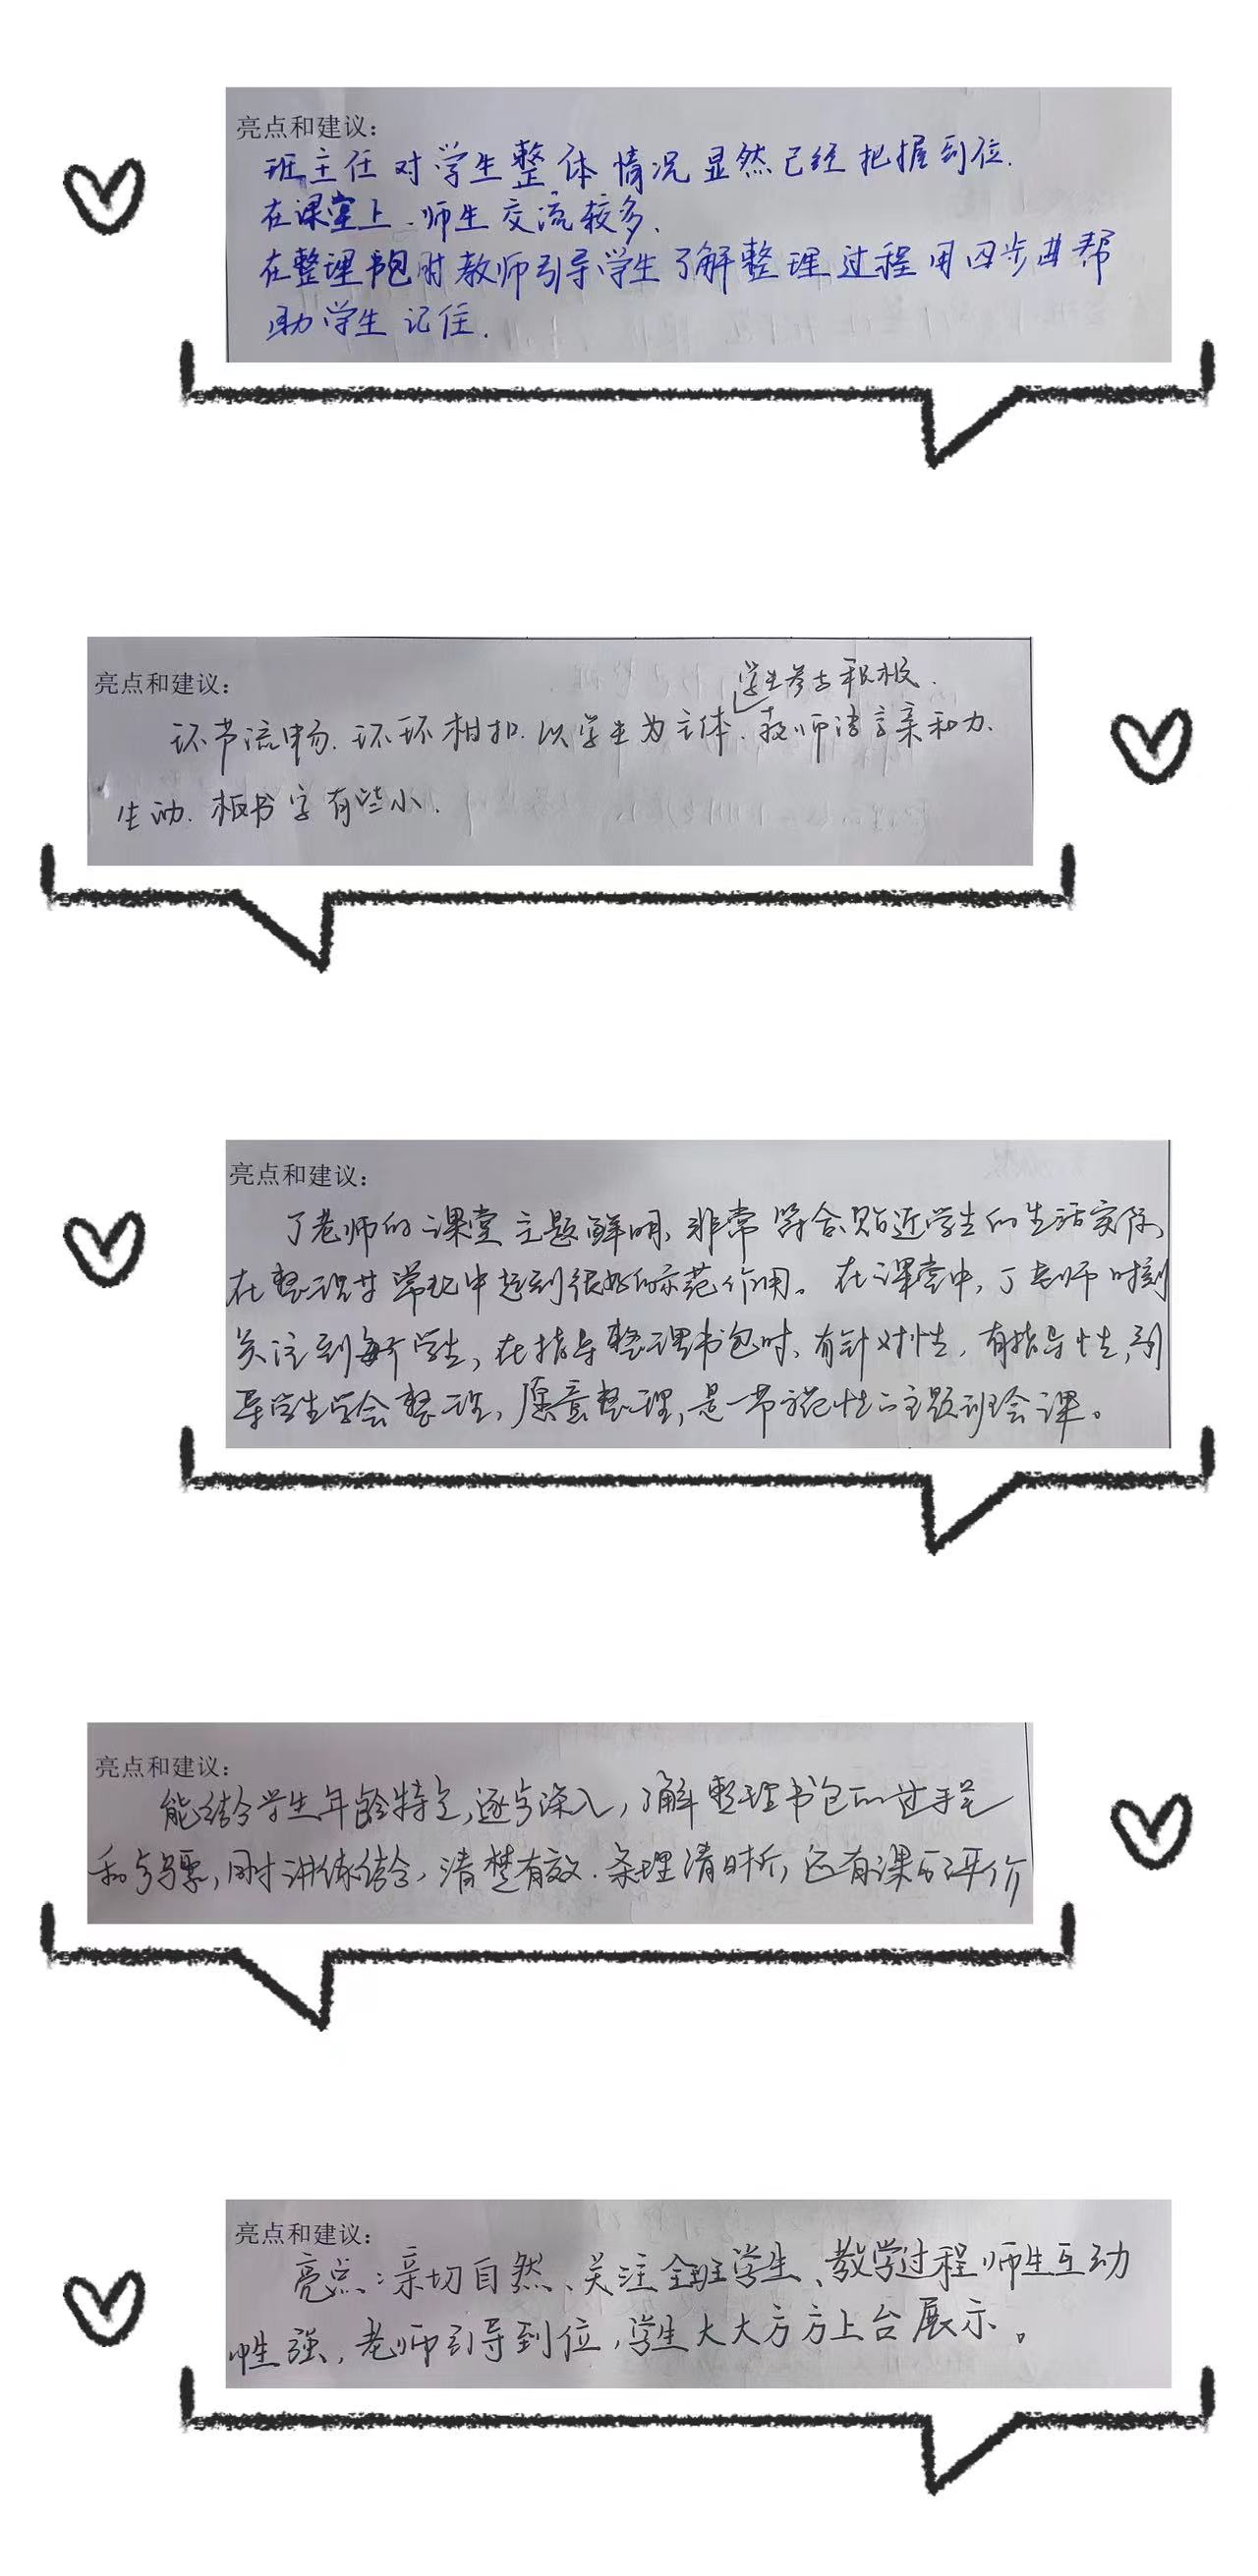 亮点和建议：
班主任对学生整体情况显然已经把握到位.
在课堂上.师生交流较多.
在整理书包时教师引导学生了解整理过程用四步曲帮
助学生记住.
亮点和建议：
学生参与积极.
环节流畅.环环相扣.以学生为主体.教师语言亲和力.
生动.板书字有些小.
亮点和建议：
丁老师的课堂主题鲜明、非常符合贴近学生的生活实际,
在整理常规中起到很好的示范作用。在课堂中，丁老师时刻
关注到每个学生，在指导整理书包时、有针对性，有指导性,引
导学生学会整理，愿意整理，是一节示范性的主题班会课。
亮点和建议：
能结合学生年龄特点,逐步深入，了解整理书包的过程
和步骤，同时讲练结合，清楚有效.条理清晰，还有课后评价
亮点和建议：
亮点：亲切自然、关注全班学生、教学过程师生互动
性强，老师引导到位，学生大大方方上台展示。